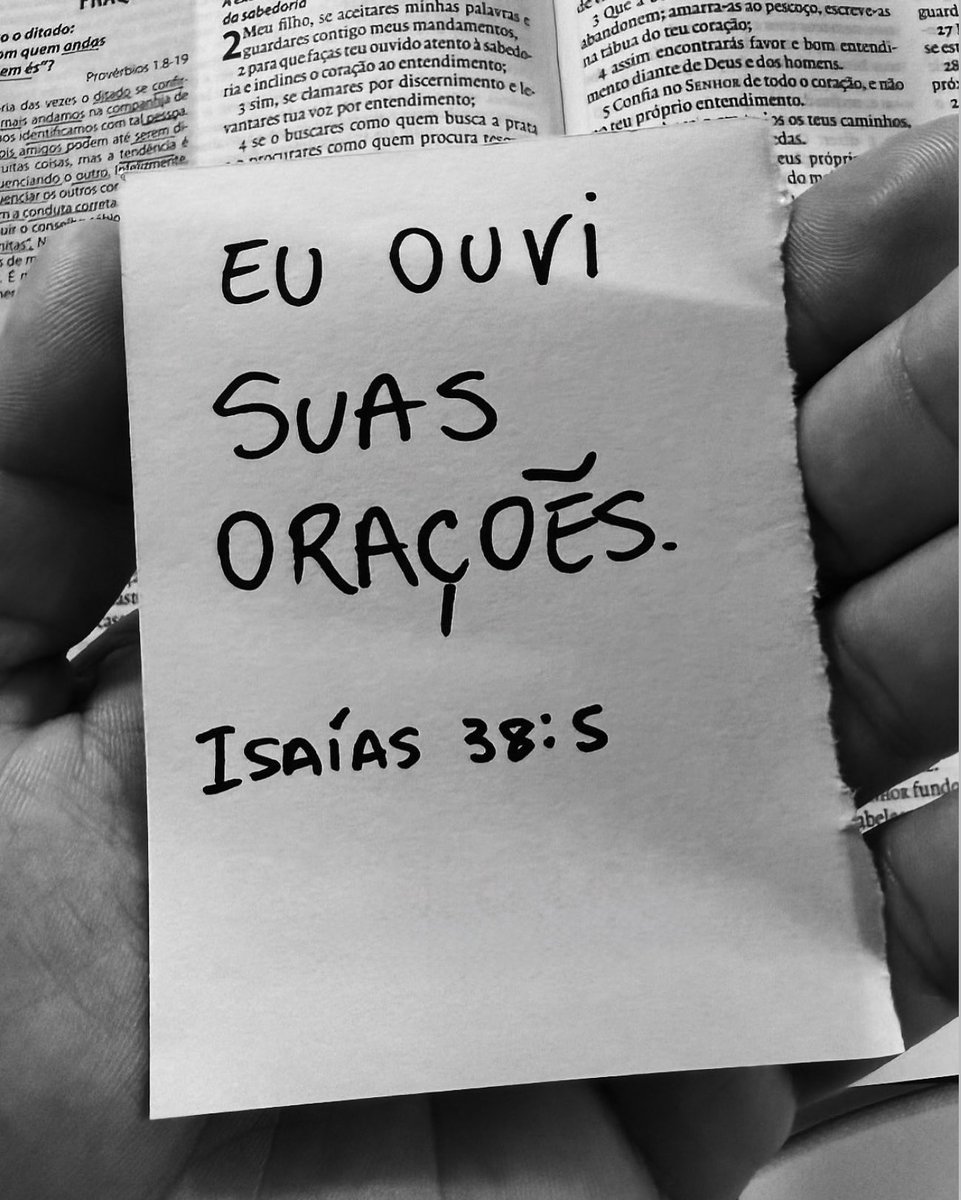 o o ditado:
om quem andas
em és"?
Provérbios 1.8-19
ria das vezes o ditado se
mais andamos na companhia de
nos identificamos com tal pessoa.
ois amigos podem até serem di-
uitas coisas, mas a tendência é
uenciando o outro. Infelizmente
uenciar os outros
m a conduta correta
uir o
da sabedoria
2 Meu filho, se aceitares minhas palavras e
guardares contigo meus mandamentos,
2 para que faças teu ouvido atento à sabedo-
ria e inclines o coração ao entendimento;
3 sim, se clamares por discernimento e le-
vantares tua voz por entendimento;
4 se o buscares como quem busca a prata
procurares como quem procura
3 Que a
abandonem; amarra-as ao pescoço, escreve-as
na tábua do teu coração;
4 assim encontrarás favor e bom entendi-
mento diante de Deus e dos homens.
5 Confia no SENHOR de todo o coração, e não
teu próprio entendimento.
os os teus caminhos,
das.
eus própri
do m
guard
27
se est
28
pró
2
EU OUVI
SUAS
ORAÇÕES.
ISAÍAS 38:5
HOR funda
abele